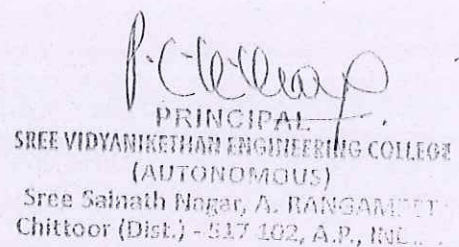 PRINCIPAL
SREE VIDYANIKETHAN ENGINEERING COLLEGE
(AUTONOMOUS)
Sree Sainath Nagar, A. RANGAMPET
Chittoor (Dist.) - 517 102, A.P.,